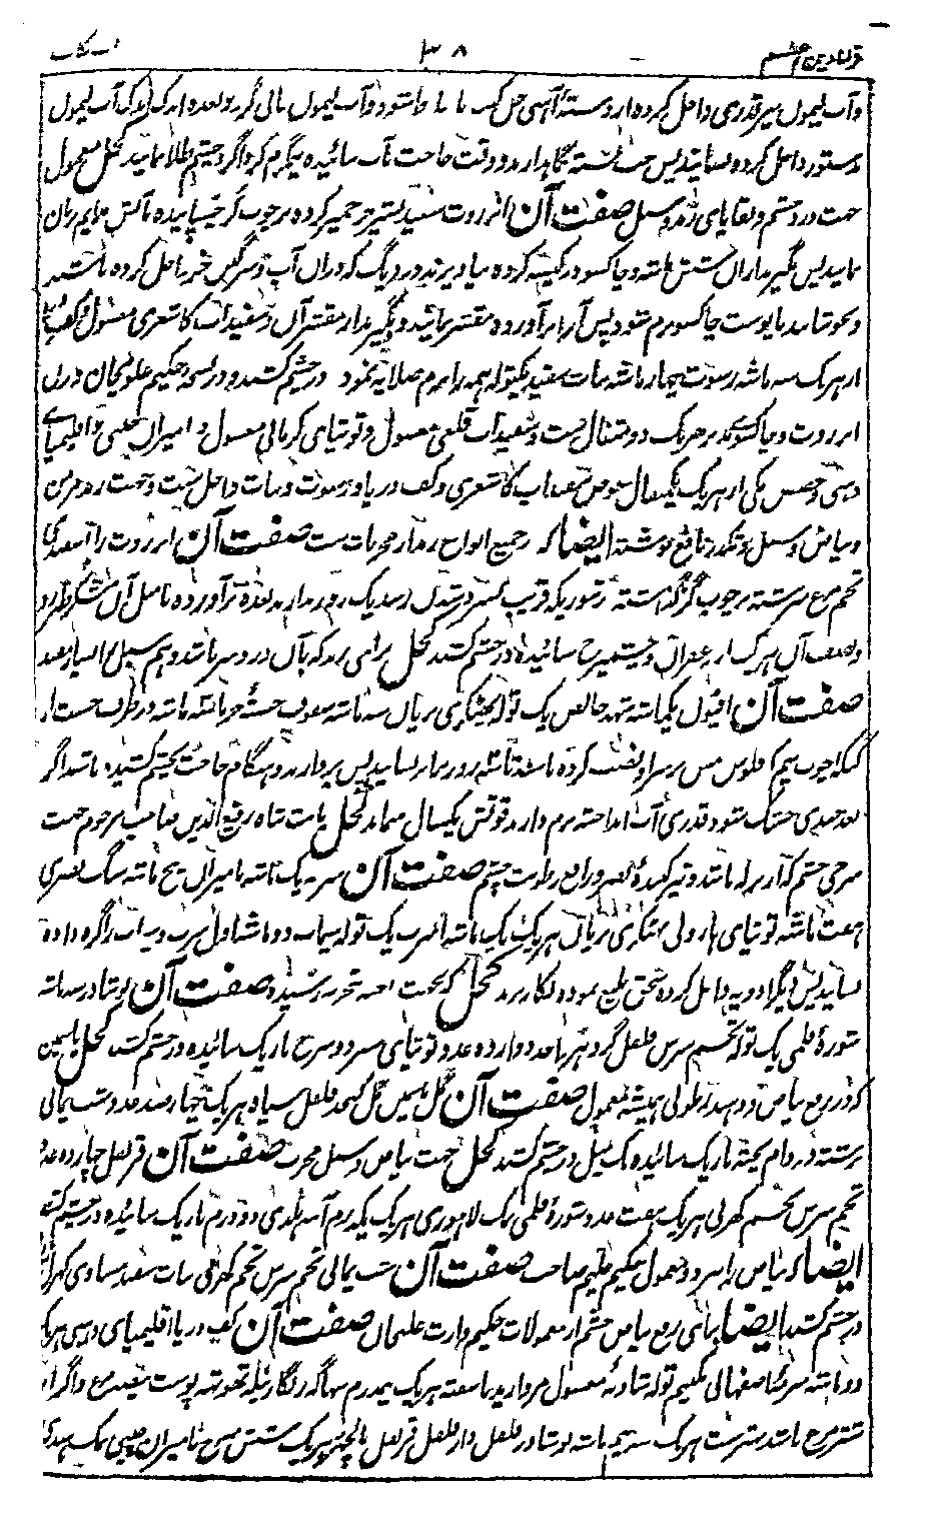 قرابادین اعظم ٣٨ باب کاف
و آب لیمون سیر قدری داخل کرده از دستهٔ آهنی حل کنند تا ... شود و آب لیمون ... بعده اندک اندک آب لیمون
بدستور داخل کرده بسایند پس حب بسته نگاهدارند و وقت حاجت بآب سائیده نیمگرم کرده گرد چشم طلا نمایند کحل معمول
جهت درد چشم و بقایای رمد و سبل صفت آن انزروت سفید بشیر خر خمیر کرده بر چوب گز چسپانیده بآتش ملایم بریان
نمایند پس بگیرند ازان شش ماشه و چاکسو در کیسه کرده بیاویزند در دیگ که دران آب و سرگین خر داخل کرده باشند
و بجوشانند تا پوست چاکسو نرم شود پس آنرا برآورده مقشر نمائید و بگیرند از مقشر آن و سفیداب کاشغری مغسول و کف دریا
از هر یک سه ماشه رسوت چهار ماشه نبات سفید یکتوله همه را نرم صلایه نموده در چشم کشند و در نسخه حکیم علویخان وزن
انزروت و چاکسوی مدبر هر یک دو مثقال است و سفیداب قلعی مغسول و توتیای کرمانی مغسول و مامیران چینی و اقلیمیای
ذهبی و حضض مکی از هر یک یکمثقال عوض سفیداب کاشغری و کف دریا و رسوت و نبات داخل نیست و جهت رمد مزمن
و بیاض و سبل و تکدر نافع نوشته ایضا که در جمیع انواع رمد از مجربات ست صفت آن انزروت را بسفیدی
تخم مرغ سرشته بر چوب گز گذاشته در تنوریکه قریب بسرد شدن رسد یک روز بدارند بعده برآورده مقابل آن شکر طبرزد
و نصف آن هر یک از زعفران و شیشم سائیده در چشم کشند کحل برای رمد که بآن درد سر باشد و هم سبل را بسیار مفید
صفت آن افیون یکماشه شهد خالص یک توله پهٹکری بریان سه ماشه سفوف جستهٔ ... ماشه در ظرف جست از
تکه چوب نیم که فلوس مس بر سر او نصب کرده باشند تا شش روز برابر بسایند پس بردارند و بهنگام حاجت بچشم کشیده باشند اگر
بعد چندی خشک شود قدری آب انداخته نرم دارند قوتش یکسال میماند کحل بابت شاه رفیع الدین صاحب مرحوم جهت
سرخی چشم که از نزله باشد و تیز کنندهٔ بصر و رافع رطوبت چشم صفت آن سرمه یک ماشه مامیران پنج ماشه سنگ بصری
هفت ماشه توتیای هارونی پهٹکری بریان هر یک یک ماشه اسرب یک توله سیماب دو ماشه اول سرب و سیماب را گره داده
بسایند پس دیگر ادویه داخل کرده سحق بلیغ نموده بکار برند کحل که بحت ... بتجربه رسیده صفت آن نوشادر سه ماشه
شورهٔ قلمی یک توله تخم سرس فلفل گرد هر واحد دوازده عدد توتیای سبز دو سرخ باریک سائیده در چشم کشند کحل یاسمین
که در رفع بیاض ... همیشه معمول صفت آن گل یاسمین گل کنجد فلفل سیاه هر یک چهار صد عدد شب یمانی
برشته دو دام پخته باریک سائیده یک میل در چشم کشند کحل جهت بیاض و سبل مجرب صفت آن قرنفل چهارده عدد
تخم سرس تخم کهرنی هر یک هفت عدد شورهٔ قلمی نمک لاهوری هر یک یکدرم آنبه هلدی دو درم باریک سائیده در چشم کشند
ایضا که بیاض را ببرد و معمول حکیم علیم صاحب صفت آن شب یمانی تخم سرس تخم کهرنی نبات سفید مساوی کهرل کرده
در چشم کشند ایضا برای رفع بیاض چشم از معمولات حکیم وارث علیخان صفت آن کف دریا اقلیمیای ذهبی هر یک
دو ماشه سرمهٔ اصفهانی یکنیم توله شادنه مغسول مروارید ناسفته هر یک یکدرم سهاگه زنگار نیله تهوتهه پوست بیضه مرغ و اگر از
شتر مرغ باشد بهتر است هر یک سه نیم ماشه نوشادر فلفل دار فلفل قرنفل ... هر یک شش سرخ مامیران چینی نمک هندی